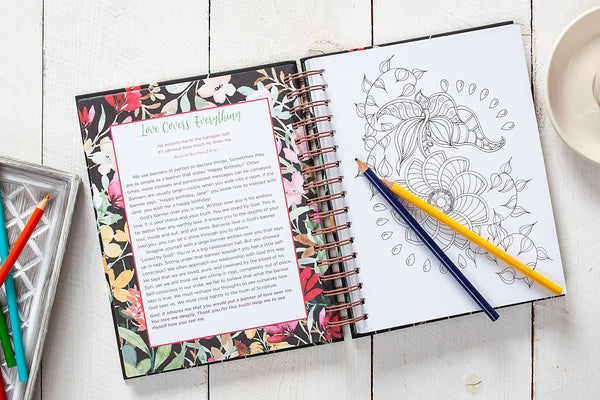 Love Covers Everything
He escorts me to the banquet hall,
it's obvious how much he loves me.
SONG OF SOLOMON 2:4 NLT
We use banners at parties to declare things. Sometimes they
are as simple as a banner that states "Happy Birthday!" Other
times, more intimate and personalized messages can be conveyed.
Banners are usually large—visible when you walk in a room. If the
banner says, "Happy birthday, Jane!" you know how to interact with
Jane; you wish her a happy birthday!
God's banner over you is love. Written over you is his endless
love. It is your status and your truth. You are loved by God. This is
far better than any earthly love. It knows you to the depths of your
soul, inside and out, and still loves. Because love is God's banner
over you, you can let it shine through you to others.
Imagine yourself with a large banner written over you that says,
"Loved by God!" You're in a big celebration hall. But you showed
up in rags. Sitting under that banner, wouldn't you feel a little self-
conscious? We often approach our relationship with God this way.
He says that we are loved, pure, and cleansed by the blood of his
Son, yet we still think we are sitting in rags, completely out of place.
Self-conscious in our state, we fail to believe that what the banner
says is true. We must reshape our thoughts to see ourselves how
God sees us. We must cling tightly to the truth of Scripture.
God, it amazes me that you would put a banner of love over me.
You love me deeply. Thank you for this truth! Help me to see
myself how you see me.